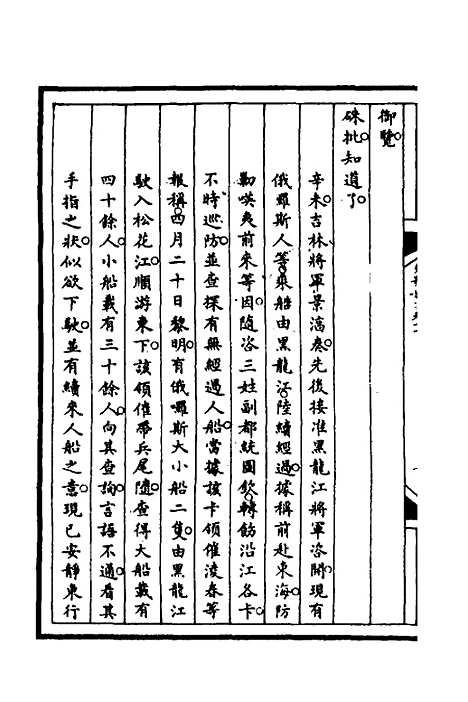 御覽。
硃批。知道了。
辛未。吉林將軍景淳奏。先後接准黑龍江將軍咨開。現有
俄羅斯人等。乘船由黑龍江。陸續經過。據稱前赴東海防
勦𠸄夷前來等因。隨咨三姓副都統圖欽。轉飭沿江各卡。
不時巡防。並查探有無經過人船。當據該卡領催淩春等
報稱。四月二十日黎明。有俄囉斯大小船二隻。由黑龍江
駛入松花江。順游東下。該領催帶兵尾隨。查得大船載有
四十餘人。小船載有三十餘人。向其查詢。言語不通。看其
手指之狀。似欲下駛。並有續來人船之意。現已安靜東行